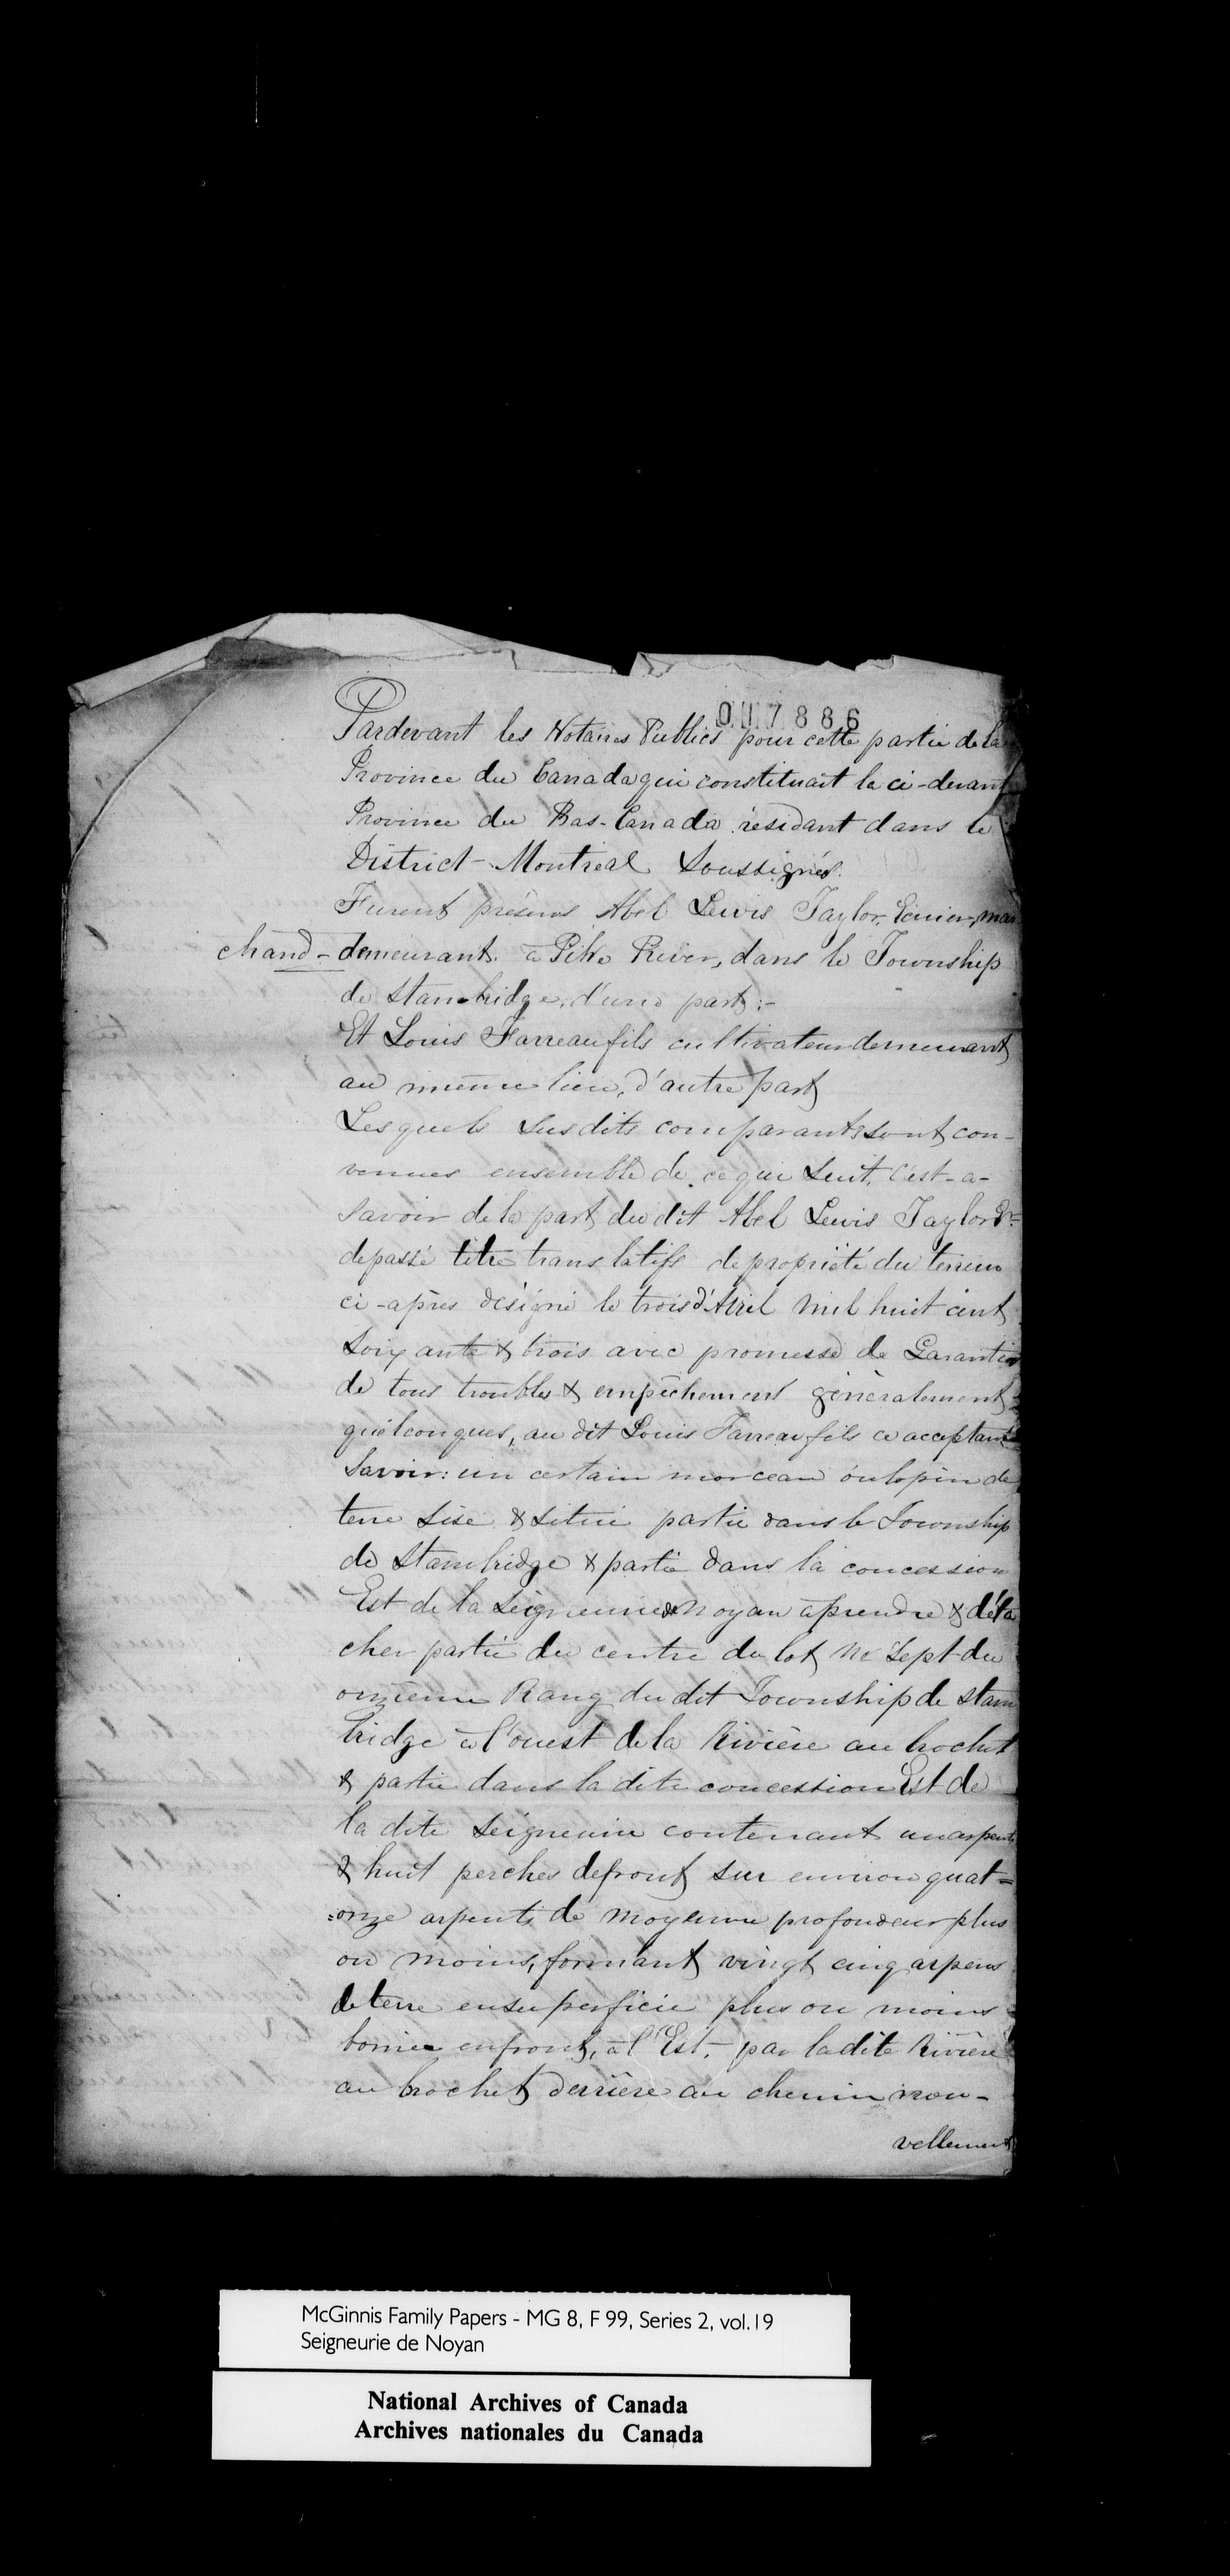 007886
Pardevant les Notaires Publics pour cette partie de la
Province du Canada qui constituait la ci-devant
Province du Bas-Canada résidant dans le
District Montreal Soussignés.
Furent présens Abel Lewis Taylor, Ecuier, mar
chand - demeurant à Pike River, dans le Township
de Stanbridge, d'une part;-
Et Louis Farreau fils cultivateur demeurant
au même lieu, d'autre part
Lesquels susdits comparants sont con-
venues ensemble de ce qui suit, c'est-a-
savoir de la part du dit Abel Lewis Taylor Er
de passé titre translatifs de propriété du terrein
ci-après désigné le trois d'Avril mil huit cent
soixante & trois avec promesse de Garantie
de tous troubles & empêchement généralement
quelconques, au dit Louis Farreau fils ce acceptant
Savoir: un certain morceau ou lopin de
terre sise & situé partie dans le Township
de Stanbridge & partie dans la concession
Est de la Seigneurie de Noyan à prendre & déta
cher partie du centre du lot No Sept du
onzième Rang du dit Township de Stan
bridge à l'ouest de la Rivière au brochet
& partie dans la dite concession Est de
la dite Seigneurie contenant un arpent
& huit perches de front sur environ quat=
=orze arpents de moyenne profondeur plus
ou moins, formant vingt cinq arpens
de terre en superficie plus ou moins
bornée en front, à l'Est, par la dite Rivière
au brochet, derrière au chemin nou-
vellement
McGinnis Family Papers - MG 8, F 99, Series 2, vol.19
Seigneurie de Noyan
National Archives of Canada
Archives nationales du Canada